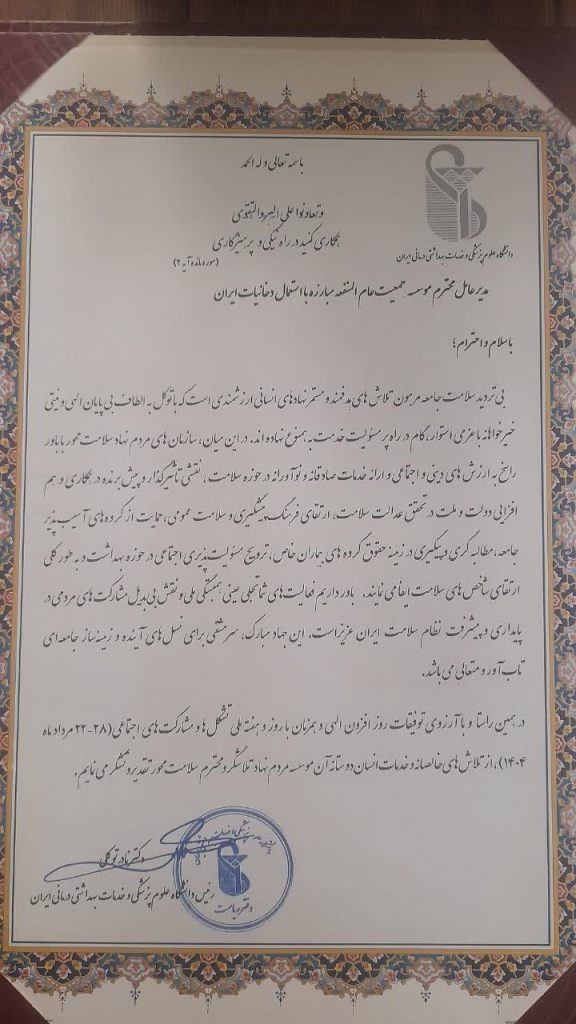 باسمه تعالی وله الحمد
وتعاونوا علی البر والتقوی
همکاری کنید در راه نیکی و پرهیزکاری
(سوره مائده آیه ۲)
دانشگاه علوم پزشکی و خدمات بهداشتی درمانی ایران
مدیر عامل محترم موسسه جمعیت عام المنفعه مبارزه با استعمال دخانیات ایران
با سلام و احترام؛
بی تردید سلامت جامعه مرهون تلاش های هدفمند و مستمر نهادهای انسانی ارزشمندی است که با توکل به الطاف بی پایان الهی و نیتی
خیرخواهانه با عزمی استوار، گام در راه پر مسئولیت خدمت به همنوع نهاده اند. در این میان، سازمان های مردم نهاد سلامت محور با باور
راسخ به ارزش های دینی و اجتماعی و ارائه خدمات صادقانه و نوآورانه در حوزه سلامت، نقشی تأثیرگذار و پیش برنده در همکاری و هم
افزایی دولت و ملت در تحقق عدالت سلامت، ارتقای فرهنگ پیشگیری و سلامت عمومی، حمایت از گروه های آسیب پذیر
جامعه، مطالبه گری و پیگیری در زمینه حقوق گروه های بیماران خاص، ترویج مسئولیت پذیری اجتماعی در حوزه بهداشت و به طور کلی
ارتقای شاخص های سلامت ایفا می نمایند. باور داریم فعالیت های شما تجلی عینی همبستگی ملی و نقش بی بدیل مشارکت های مردمی در
پایداری و پیشرفت نظام سلامت ایران عزیز است. این جهاد مبارک، سرمشقی برای نسل های آینده و زمینه ساز جامعه ای
تاب آور و متعالی می باشد.
در همین راستا و با آرزوی توفیقات روز افزون الهی و همزمان با روز و هفته ملی تشکل ها و مشارکت های اجتماعی (۲۸-۲۲ مرداد ماه
۱۴۰۴)، از تلاش های خالصانه و خدمات انسان دوستانه آن موسسه مردم نهاد تلاشگر و محترم سلامت محور تقدیر و تشکر می نمایم.
دکتر نادر توکلی
رئیس دانشگاه علوم پزشکی و خدمات بهداشتی درمانی ایران
دفتر ریاست